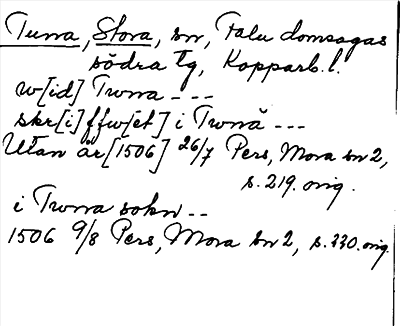 Tuna, Stora, sn, Falu domsagas
södra tg, Kopparb. l.
w[id] Twna ---
skr[i]ffw[et] i Twnä ---
Utan år [1506] 26/7 Pers, Mora sn 2,
s. 219. orig.
i Twna sokn --
1506 9/8 Pers, Mora sn 2, s. 220. orig.